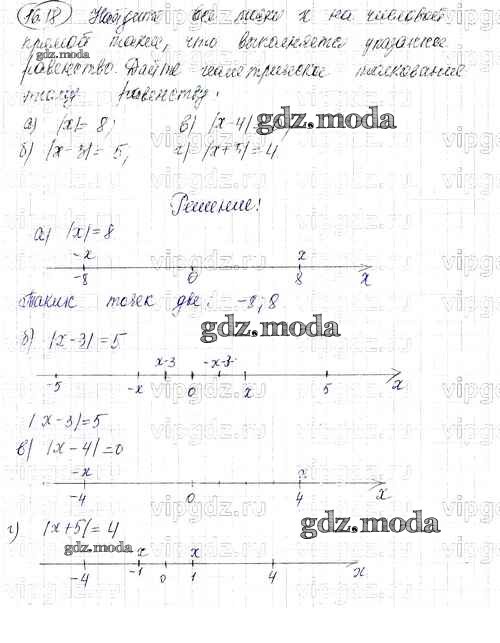 16.18 Найдите все точки x на числовой
прямой такие, что выполняется указанное
gdz.moda
равенство. Дайте геометрическое толкование
этому равенству:
а) |x|= 8; в) |x-4| gdz.moda
б) |x-3|= 5; г) |x+5|=4
Решение:
а) |x|=8
-x x
-8 0 8 x
Таких точек две: -8; 8
gdz.moda
б) |x-3|=5
x-3 -x-3
-5 -x 0 x 5 x
|x-3|=5
в) |x-4|=0
-x x
-4 0 4 x
gdz.moda
г) |x+5|=4
gdz.moda x x
-4 -1 0 1 4 x